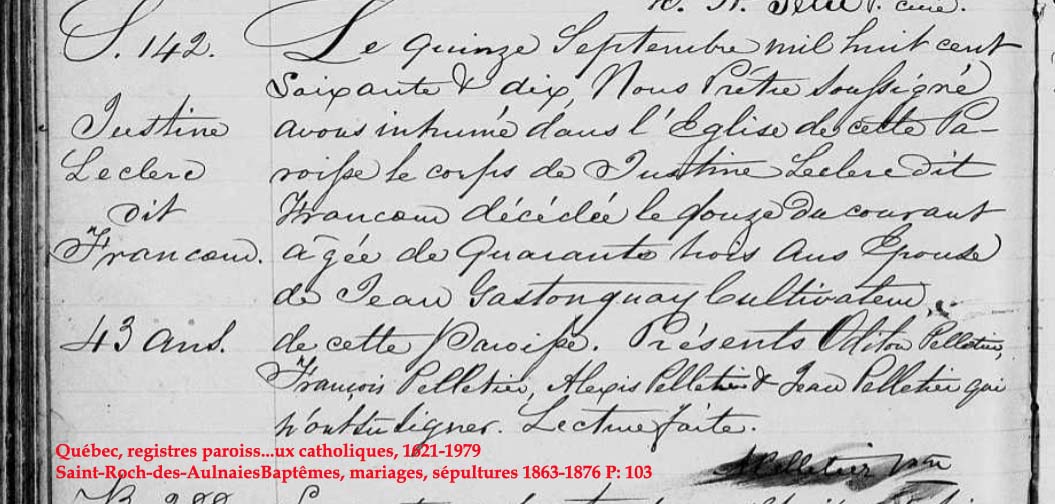 S. 142. Le quinze Septembre mil huit cent
Soixante & dix, Nous Prêtre Soussigné
Justine avons inhumé dans l'Eglise de cette Pa-
Leclerc roisse le corps de Justine Leclerc dit
dit Francoeur décédée le douze du courant
Francoeur. âgée de Quarante trois ans Epouse
de Jean Gastonguay Cultivateur,
43 ans. de cette Paroisse. Présents Odilon Pelletier,
François Pelletier, Alexis Pelletier & Jean Pelletier qui
n'ont su signer. Lecture faite.
Québec, registres paroiss...ux catholiques, 1621-1979
Saint-Roch-des-AulnaiesBaptêmes, mariages, sépultures 1863-1876 P: 103
Pelletier